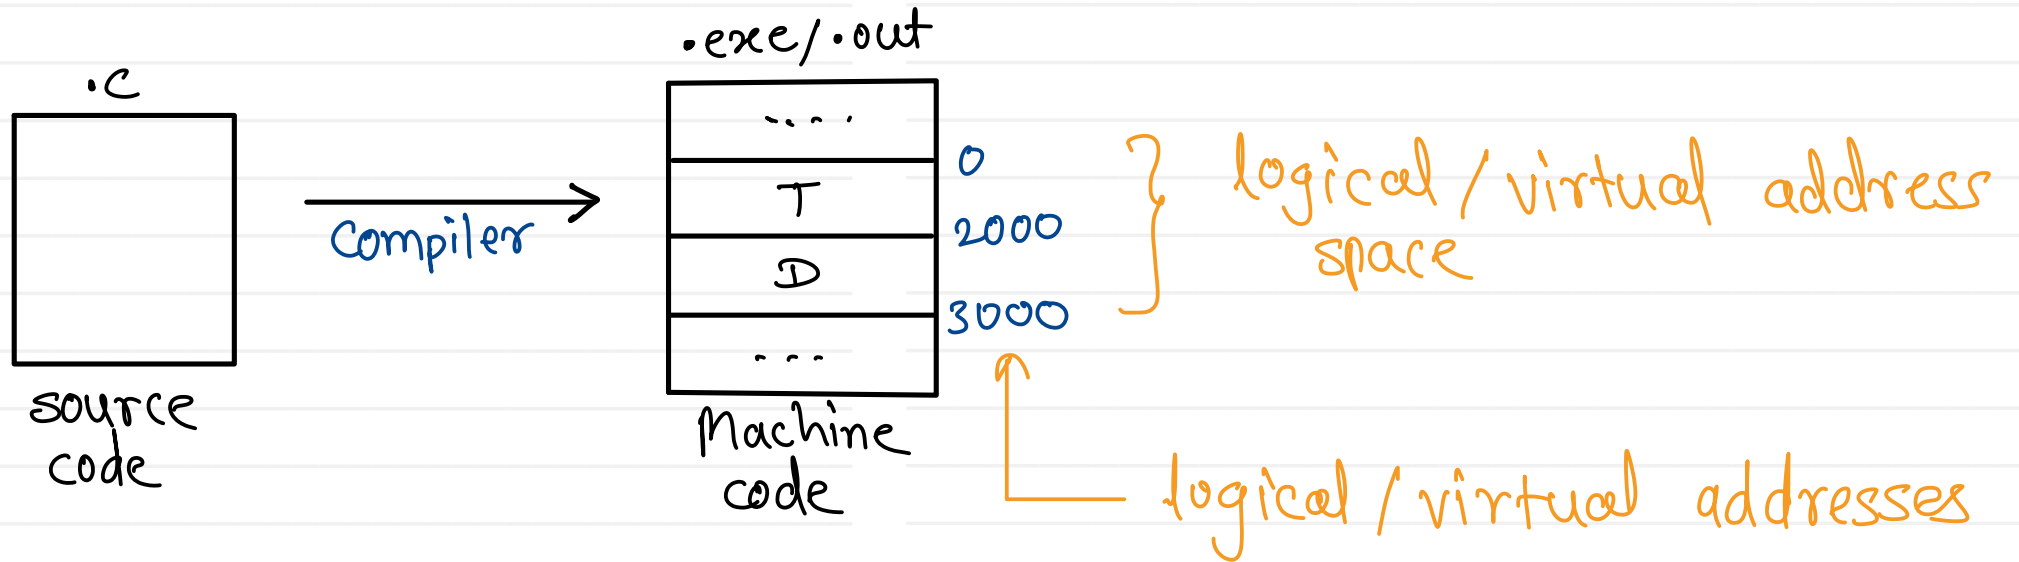 .c
source
code
Compiler
.exe/.out
....
T
D
...
Machine
code
0
2000
3000
logical/virtual address
space
logical/virtual addresses